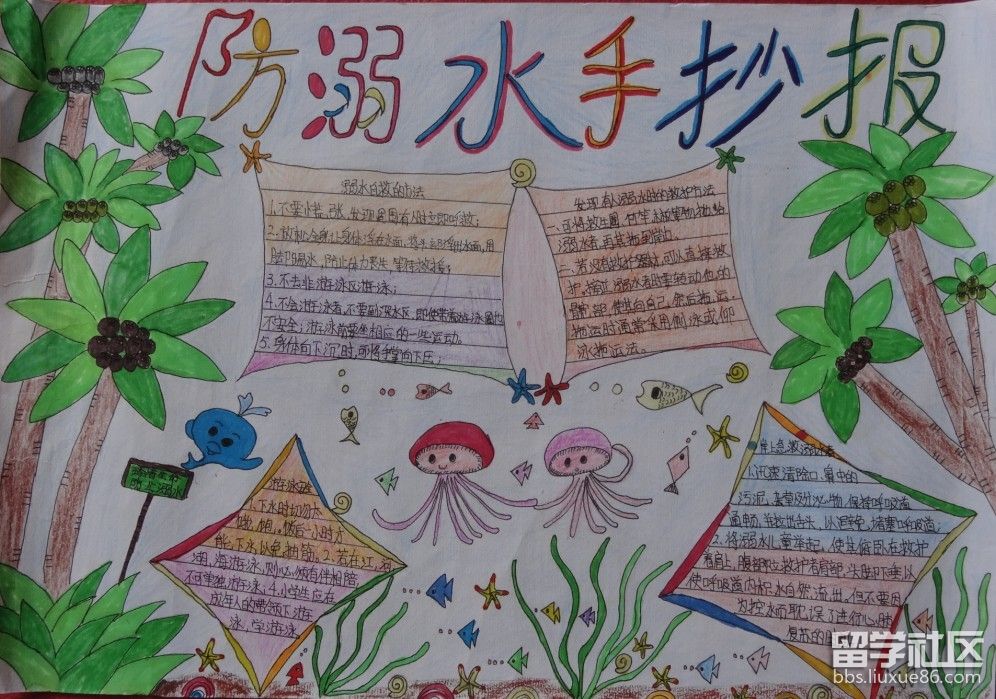 防溺水手抄报
溺水自救的方法
1.不要慌张,发现周围有人时立即呼救;
2.放松全身,让身体漂浮在水面,将头部浮出水面,用
脚踢水,防止体力丧失,等待救援;
3.不去非游泳区游泳;
4.不会游泳者,不要到深水区,即使带着游泳圈也
不安全;游泳前要做相应的一些运动。
5.身体向下沉时,可将手掌向下压;
发现有人溺水时的救护方法
一、可将救生圈、竹竿、木板等物抛给
溺水者,再其拖至岸边
二、若没有救护器材,可以直接救
护,接近溺水者时要转动他的
髋部,使其背向自己然后拖运。
拖运时通常采用侧泳或仰
泳拖运法。
游泳
下水时切勿太
饿、饱,饭后一小时才
能下水,以免抽筋。2.若在江、河
湖、海游泳,则必须有伴相陪
不可单独游泳;4.小学生应在
成年人的带领下游
泳、学游泳
岸上急救溺水
1.迅速清除口、鼻中的
污泥、杂草及分泌物,保持呼吸道
通畅,并拉出舌头,以避免堵塞呼吸道;
2.将溺水儿童举起,使其俯卧在救护
者肩上,腹部紧立救护者肩部,头脚下垂,以
使呼吸道内积水自然流出,但不要因
为控水而耽误了进行心肺
复苏的
留学社区
bbs.liuxue86.com